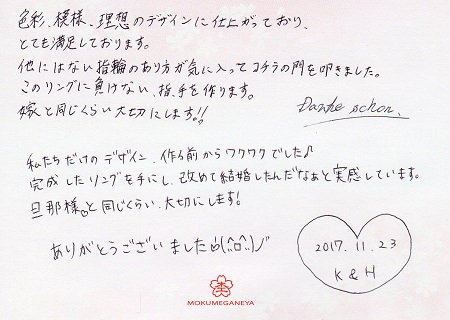 色彩、模様、理想のデザインに仕上がっており、
とても満足しております。
他にはない指輪のあり方が気に入ってコチラの門を叩きました。
このリングに負けない、指、手を作ります。
嫁と同じくらい大切にします!!
Danke schon.
私たちだけのデザイン、作る前からワクワクでした♪
完成したリングを手にし、改めて結婚したんだなぁと実感しています。
旦那様と同じくらい、大切にします!
ありがとうございました(^o^)ノ
2017.11.23
K & H
MOKUMEGANEYA